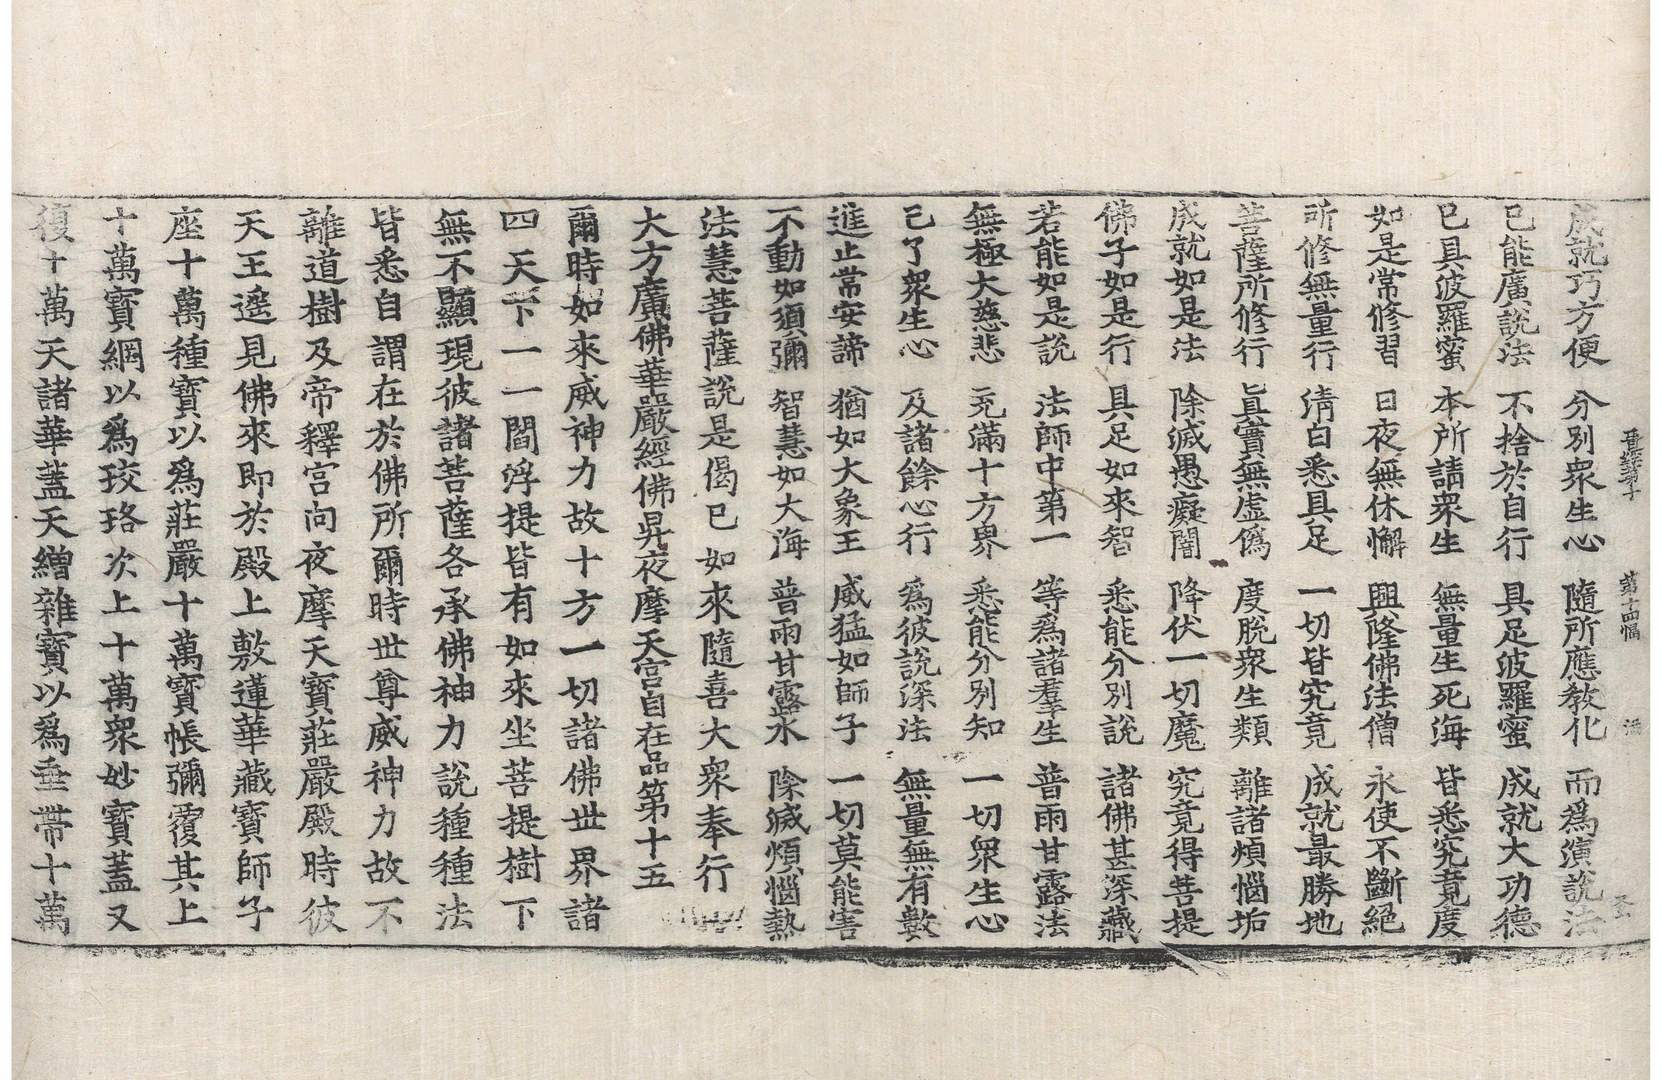 第十四幅
成就巧方便 分別衆生心 隨所應教化 而爲演說法
已能廣說法 不捨於自行 具足波羅蜜 成就大功德
已具波羅蜜 本所請衆生 無量生死海 皆悉究竟度
如是常修習 日夜無休懈 興隆佛法僧 永使不斷絕
所修無量行 清白悉具足 一切皆究竟 成就最勝地
菩薩所修行 眞實無虛僞 度脫衆生類 離諸煩惱垢
成就如是法 除滅愚癡闇 降伏一切魔 究竟得菩提
佛子如是行 具足如來智 悉能分別說 諸佛甚深藏
若能如是說 法師中第一 等爲諸羣生 普雨甘露法
無極大慈悲 充滿十方界 悉能分別知 一切衆生心
已了衆生心 及諸餘心行 爲彼說深法 無量無有數
進止常安諦 猶如大象王 威猛如師子 一切莫能害
不動如須彌 智慧如大海 普雨甘露水 除滅煩惱熱
法慧菩薩說是偈已如來隨喜大衆奉行
大方廣佛華嚴經佛昇夜摩天宮自在品第十五
爾時如來威神力故十方一切諸佛世界諸
四天下一一閻浮提皆有如來坐菩提樹下
無不顯現彼諸菩薩各承佛神力說種種法
皆悉自謂在於佛所爾時世尊威神力故不
離道樹及帝釋宮向夜摩天寶莊嚴殿時彼
天王遙見佛來即於殿上敷蓮華藏寶師子
座十萬種寶以爲莊嚴十萬寶帳彌覆其上
十萬寶網以爲珓珞次上十萬衆妙寶蓋又
復十萬天諸華蓋天繒雜寶以爲垂帶十萬